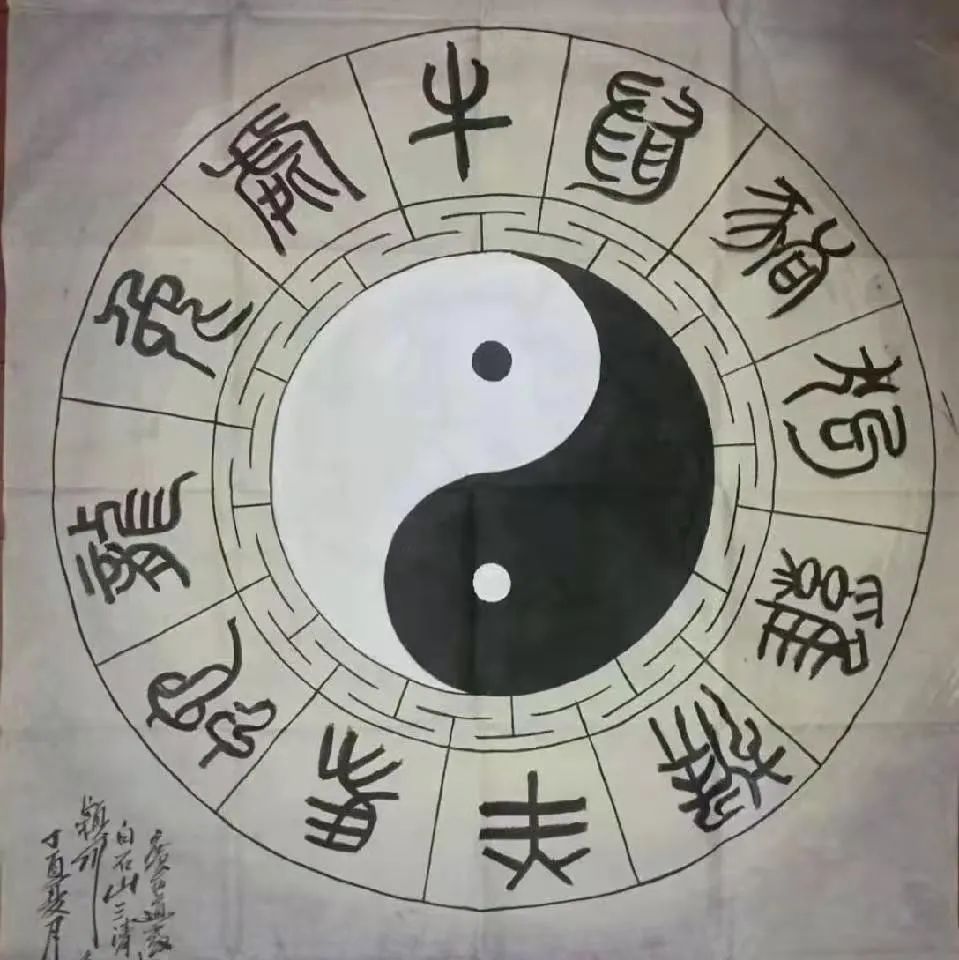 鼠
牛
虎
兔
龍
蛇
馬
羊
猴
雞
狗
豬
白石山三清
丁酉夏月